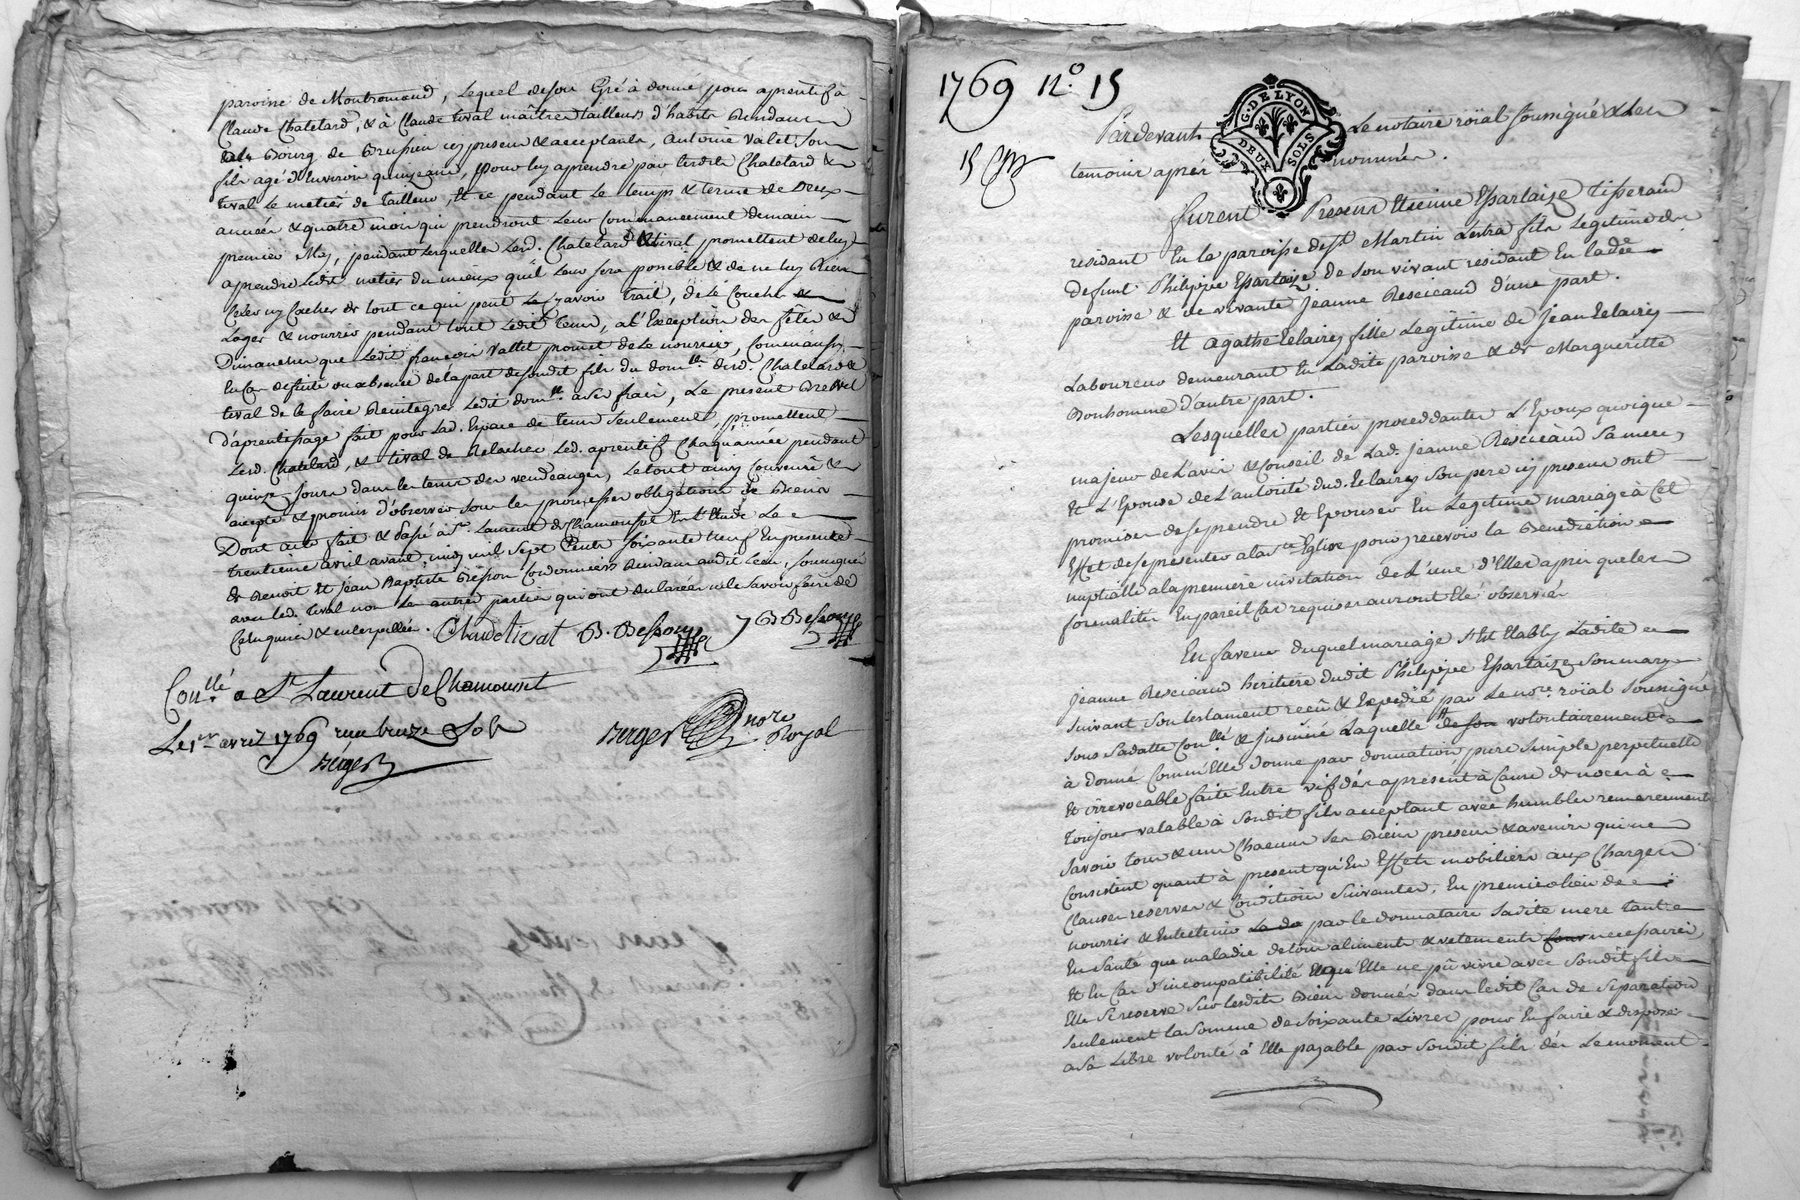 paroisse de Montromand, Lequel de son Gré à donné pour aprentif à
Claude Chatelard, & à Claude tival maîtres tailleurs d'habits Rendants
au Bourg de Brussieu icy presens & acceptants, Antoine Valet son
fils agé d'Environ quinze ans, pour luy aprendre par lesdits Chatelard &
tival Le metier de tailleur, Et ce pendant Le temps & terme de Deux
années & quatre mois qui prendront Leur Commancement demain
premier May, pendant Lesquelles Lesd. Chatelard & tival promettent de luy
aprendre Ledit metier du mieux qu'il Leur sera possible & de ne luy Rien
Celer ny Cacher de tout ce qui peut Le avoir trait, de Le Coucher
Loger & nourrir pendant tout Ledit tems, a L'Exception des fêtes &
Dimanches que Ledit françois Vallet promet de Le nourrir, Comm'aussy
En Cas de fuite ou absence de La part de sondit fils du dom.lle desd. Chatelard &
tival de le faire Reintegrer Ledit dom.lle à ses frais, Le present Brevet
d'aprentissage fait pour Lad. Epace de tems seulement, promettent
Lesd. Chatelard, & tival de Relacher Led. aprentif Chaqu'année pendant
quinze Jours dans les tems des vendanges, Le tout ainsy Convenu &
accepté & promis d'observer sous les promesses obligations de Biens
Dont acte fait & Passé à St. Laurent de Chamousset En L'Etude Le
trentieme avril avant midy mil sept Cents soixante neuf En presence
de Benoit Et Jean Baptiste Besson Cordonniers Rendants audit Lieu, soussignés
avec Led. tival non Les autres parties qui ont declarées ne le savoir faire de
Ce Enquises & interpellées. Claude tivat B. Besson J B Besson
Con.llé a St Laurent De Chamousset
Le 1er avril 1769 reçu treize Sols
Berger
Berger nore Royal
1769 n.o 15
15
G. DE LYON
DEUX SOLS
Pardevant Le notaire roïal soussigné & Les
temoins aprés nommés.
furent Presens Etienne Esparlaize tisserand
residant En la paroisse de St Martin Lestra fils Legitime de
defunt Philippe Esparlaize de son vivant residant En Ladte
paroisse & de vivante Jeanne Rescicaud d'une part.
Et agathe Eclairey fille Legitime de Jean Eclairey
Laboureur demeurant En Ladite paroisse & de Margueritte
Bonhomme d'autre part.
Lesquelles parties proceddantes L'Epoux quoique
majeur de L'avis & Conseil de Lad. Jeanne Rescicaud sa mere,
Et L'Epouse de L'autorité dud. Eclairey son pere icy presens ont
promis de se prendre Et Epouser En Legitime mariage à Cet
Effet de se presenter a la Ste Eglise pour y recevoir La Benediction
nuptialle a la premiere invitation de L'une d'Elles apres que les
formalités En pareil Cas requises auront Eté observées
En faveur duquel mariage s'Est Etably Ladite
Jeanne Rescicaud heritiere dudit Philippe Esparlaize son mary
suivant son testament reçû & Expedié par Le nore. roïal soussigné
sous sa datte Con.llé & insinué Laquelle de son volontairement
à donné Comm'Elle donne par donnation pure simple perpetuelle
Et irrevocable faite Entre vifs dès apresent à Cause de noces à
toujours valable à sondit fils acceptant avec humbles remerciements
savoir tous & un Chacun ses Biens presens & avenir qui ne
Consistent quant à present qu'En Effets mobiliers aux Charges
Clauses reserves & Conditions suivantes; En premier lieu de
nourrir & Entretenir par le donnataire Sadite mere tant
En santé que maladie de tous aliments & vetements necessaires,
Et En Cas d'incompatibilité Et qu'Elle ne pû vivre avec sondit fils
Elle se reserve sur lesdits Biens donnés dans ledit Cas de separation
seulement La somme de soixante Livres pour En faire & disposer
a sa Libre volonté à Elle payable par sondit fils dès Le moment